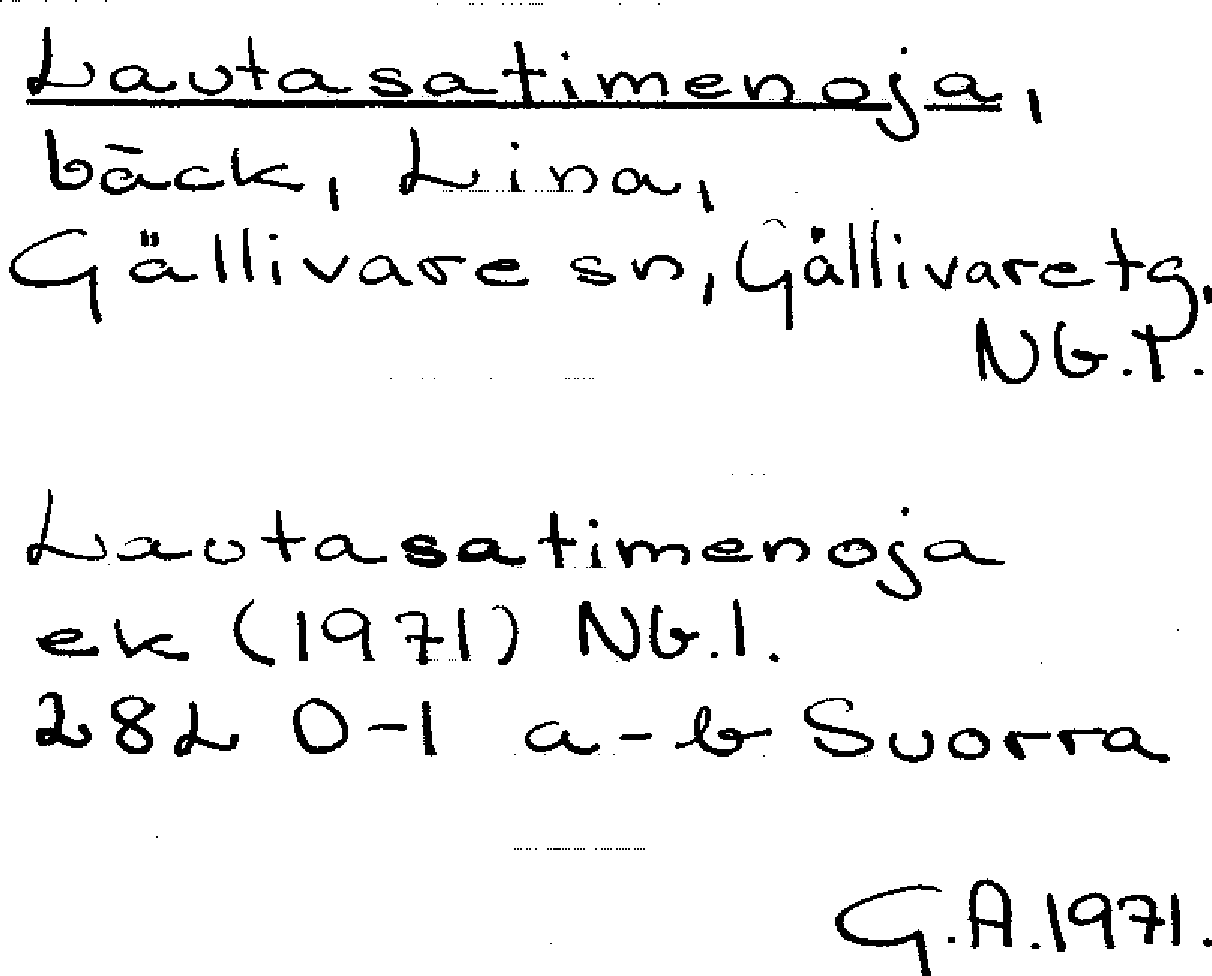 Lautasatimenoja,
bäck, Lina,
Gällivare sn, Gällivare tg.
Nb.t.
Lautasatimenoja
ek (1971) Nb.l.
28L 0-1 a-b Suorra
G.A. 1971.